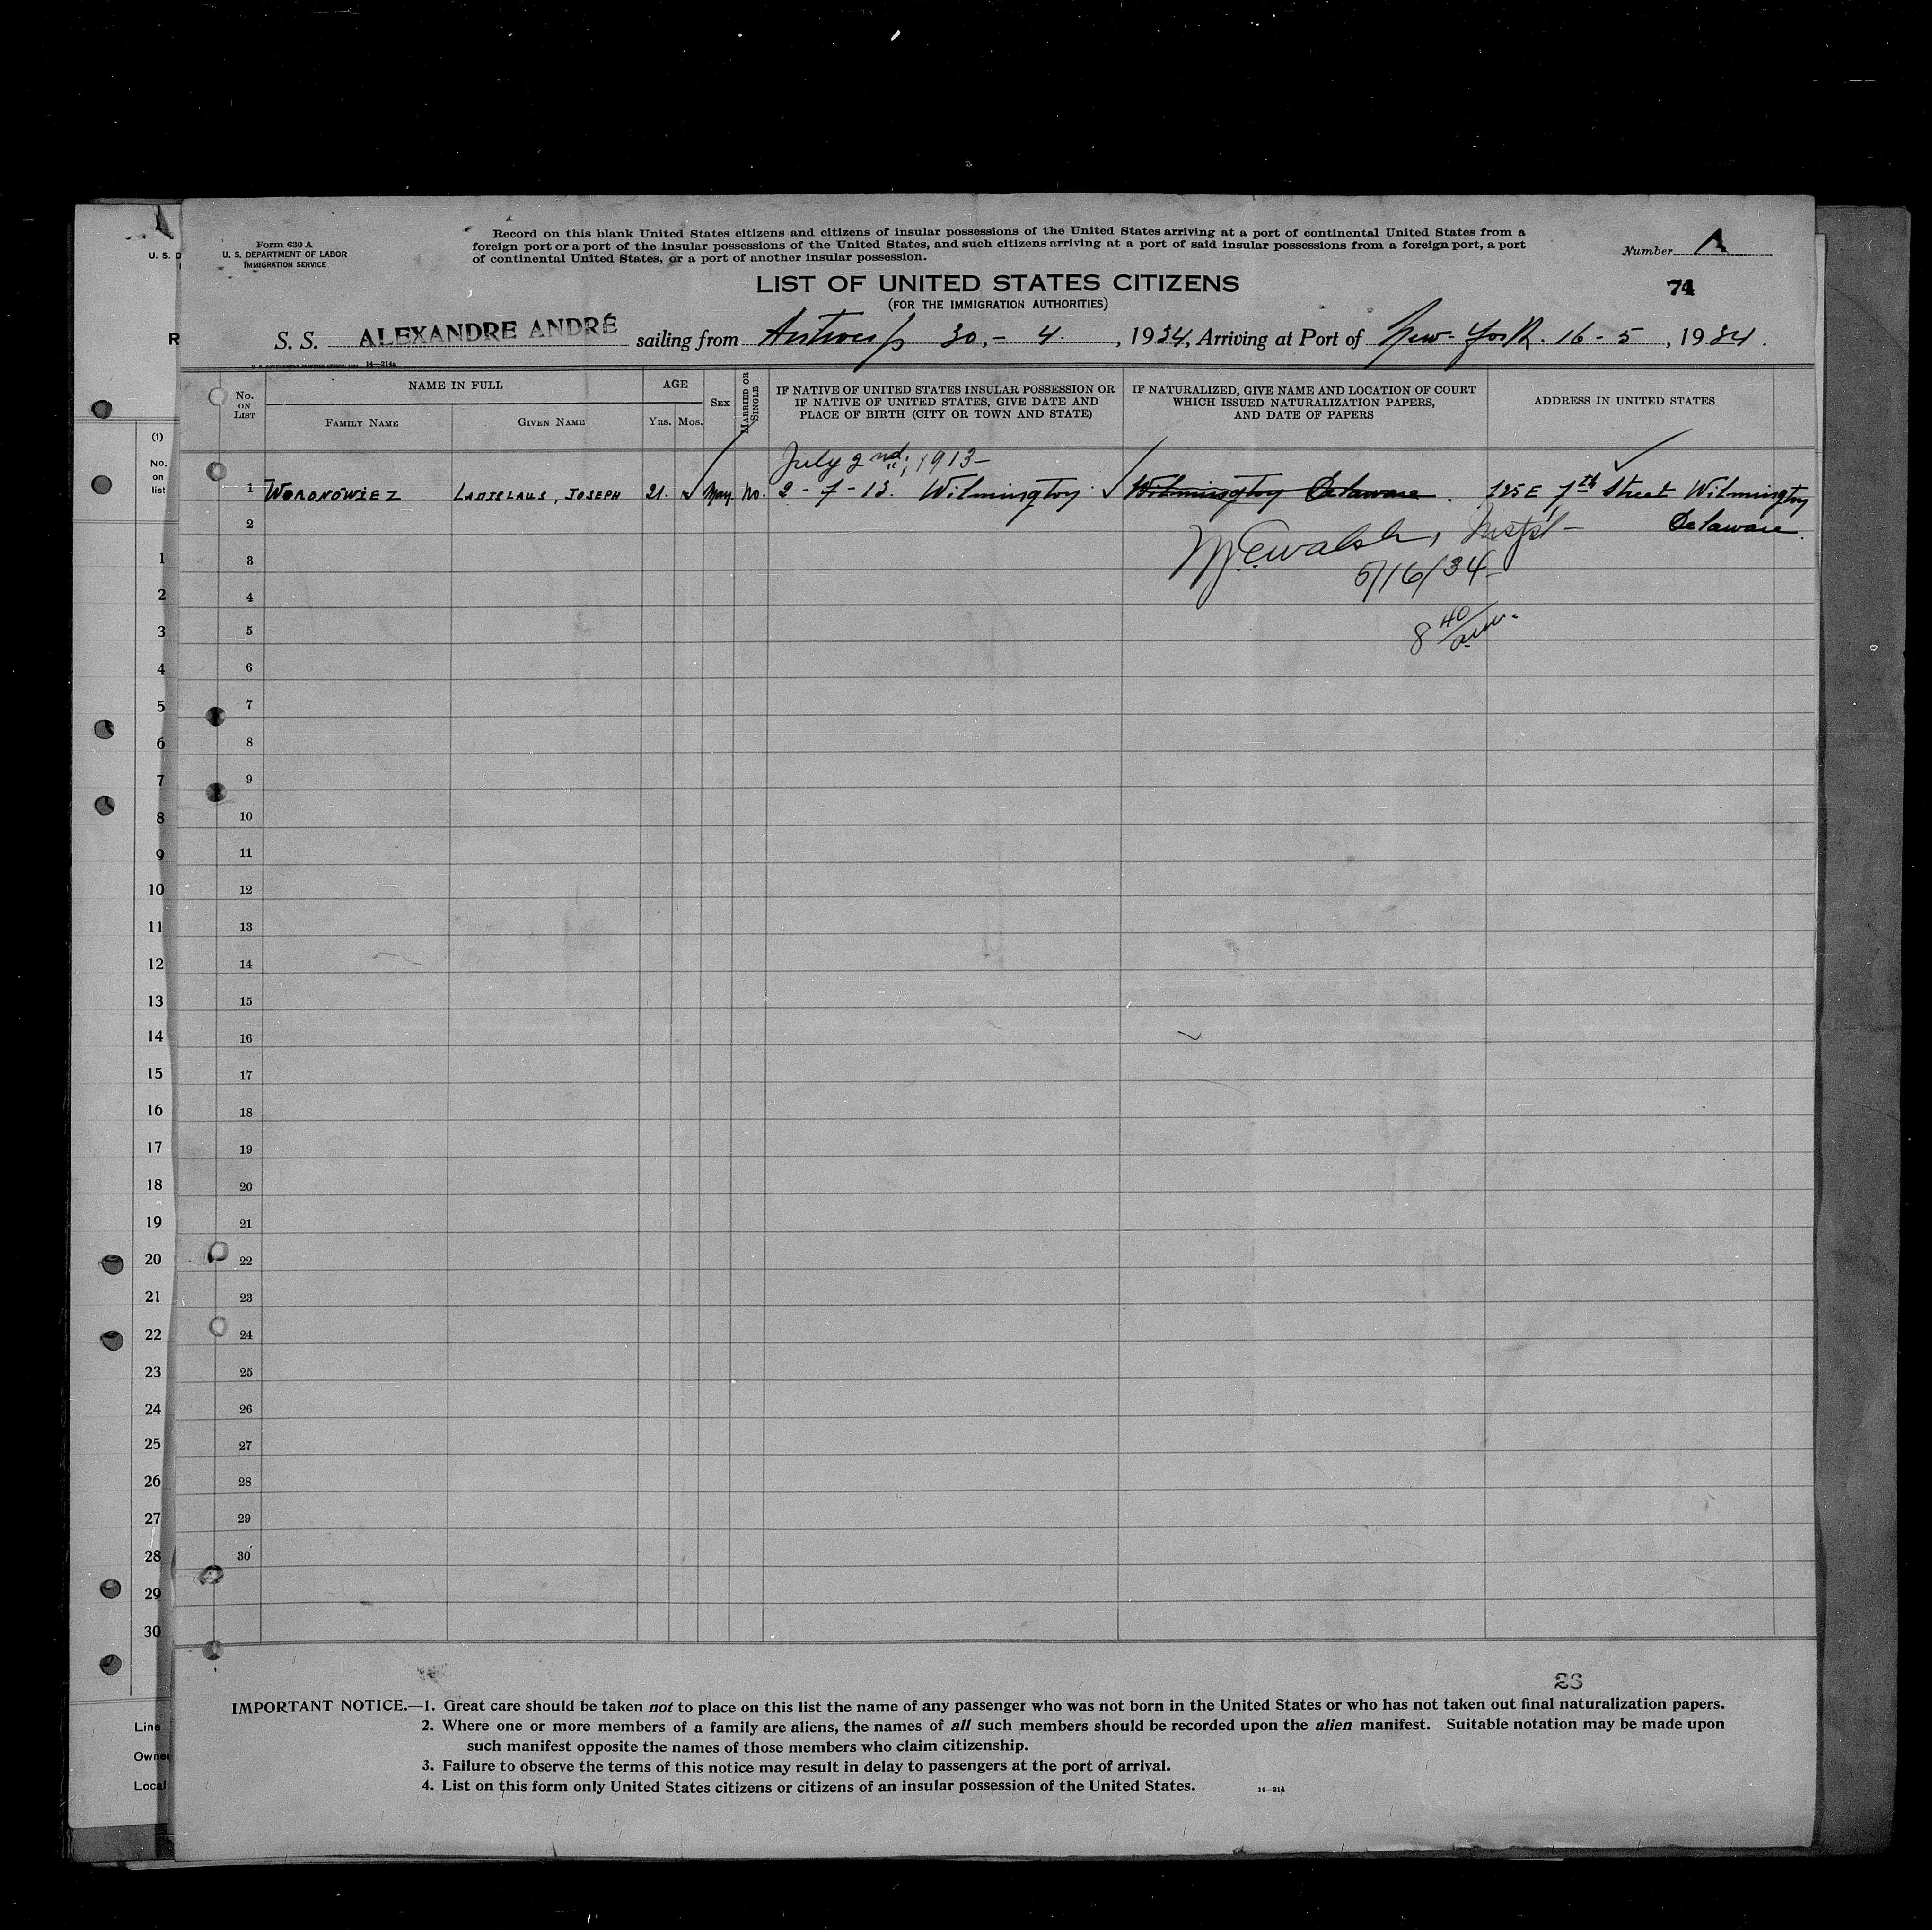 Form 630 A
U. S. DEPARTMENT OF LABOR
IMMIGRATION SERVICE
Record on this blank United States citizens and citizens of insular possessions of the United States arriving at a port of continental United States from a
foreign port or a port of the insular possessions of the United States, and such citizens arriving at a port of said insular possessions from a foreign port, a port
of continental United States, or a port of another insular possession.
Number A
U. S. D
LIST OF UNITED STATES CITIZENS
74
(FOR THE IMMIGRATION AUTHORITIES)
R
S. S. ALEXANDRE ANDRÉ sailing from Antwerp 30,- 4. , 1934, Arriving at Port of New-York. 16-5 , 1934.
14—214a
No. ON LIST
NAME IN FULL
FAMILY NAME
GIVEN NAME
AGE
YRS. MOS.
SEX
MARRIED OR SINGLE
IF NATIVE OF UNITED STATES INSULAR POSSESSION OR
IF NATIVE OF UNITED STATES, GIVE DATE AND
PLACE OF BIRTH (CITY OR TOWN AND STATE)
IF NATURALIZED, GIVE NAME AND LOCATION OF COURT
WHICH ISSUED NATURALIZATION PAPERS,
AND DATE OF PAPERS
ADDRESS IN UNITED STATES
(1)
No.
on
list
July 2nd, 1913-
1 WORONOWIEZ LADISLAUS, JOSEPH 21. Man. No. 2-7-13. Wilmington. Wilmington Delaware. 725 E 7th Street Wilmington
Delaware.
2
Walsh, Inspt-
3
5/16/34-
4
8 40/am.
5
6
7
8
9
10
11
12
13
14
15
16
17
18
19
20
21
22
23
24
25
26
27
28
29
30
1
2
3
4
5
6
7
8
9
10
11
12
13
14
15
16
17
18
19
20
21
22
23
24
25
26
27
28
29
30
Line
Owne
Local
IMPORTANT NOTICE.—1. Great care should be taken not to place on this list the name of any passenger who was not born in the United States or who has not taken out final naturalization papers.
2. Where one or more members of a family are aliens, the names of all such members should be recorded upon the alien manifest. Suitable notation may be made upon
such manifest opposite the names of those members who claim citizenship.
3. Failure to observe the terms of this notice may result in delay to passengers at the port of arrival.
4. List on this form only United States citizens or citizens of an insular possession of the United States.
14—214